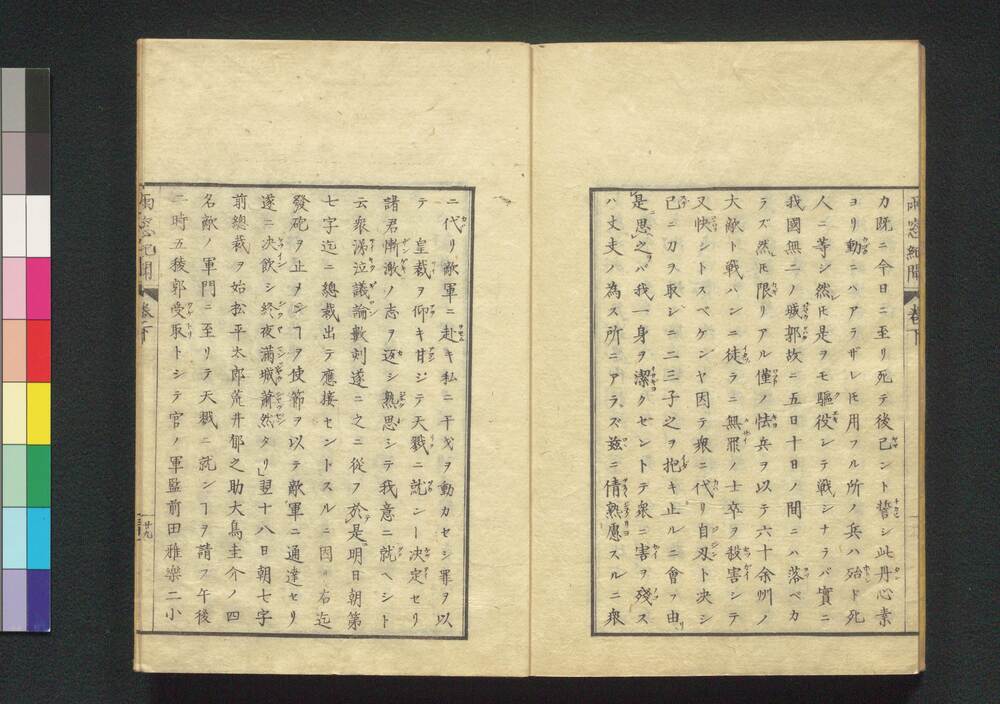 雨窓紀聞 巻下
カ既ニ今日ニ至リ死テ後已ント誓シ此丹心素
ヨリ動ニハアラザレ𪜈用フル所ノ兵ハ殆ド死
人ニ等シ然𪜈是ヲモ驅役シテ戦シナラバ實ニ
我國無二ノ城郭故ニ五日十日ノ間ニハ落ベカ
ラズ然𪜈限リアル僅ノ怯兵ヲ以テ六十余州ノ
大敵ト戦ハンニ徒ラニ無罪ノ士卒ヲ殺害シテ
又快シトスベケンヤ因テ衆ニ代リ自刃ト决シ
已ニ刀ヲ取シニ二三子之ヲ抱キ止ルニ會フ由
是思之バ我一身ヲ潔クセントテ衆ニ害ヲ殘ス
ハ丈夫ノ為ス所ニアラズ玆ニ倩熟慮スルニ衆
ニ代リ敵軍ニ赴キ私ニ干戈ヲ動カセシ罪ヲ以
テ 皇裁ヲ仰キ甘ジテ天戮ニ就ンヿ决定セリ
諸君慚激ノ志ヲ返シ熟思シテ我意ニ就ヘシト
云衆涕泣議論數刻遂ニ之ニ從フ於是明日朝第
七字迄ニ總裁出テ應接セントスルニ因テ右迄
發砲ヲ止ヲンヿヲ使節ヲ以テ敵軍ニ通達セリ
遂ニ决飲シ終夜滿城蕭然タリ翌十八日朝七字
前總裁ヲ始松平太郎荒井郁之助大鳥圭介ノ四
名敵ノ軍門ニ至リテ天戮ニ就ンヿヲ請フ午後
二時五稜郭受取トシテ官ノ軍監前田雅樂二小
雨窓紀聞 巻下
廿九